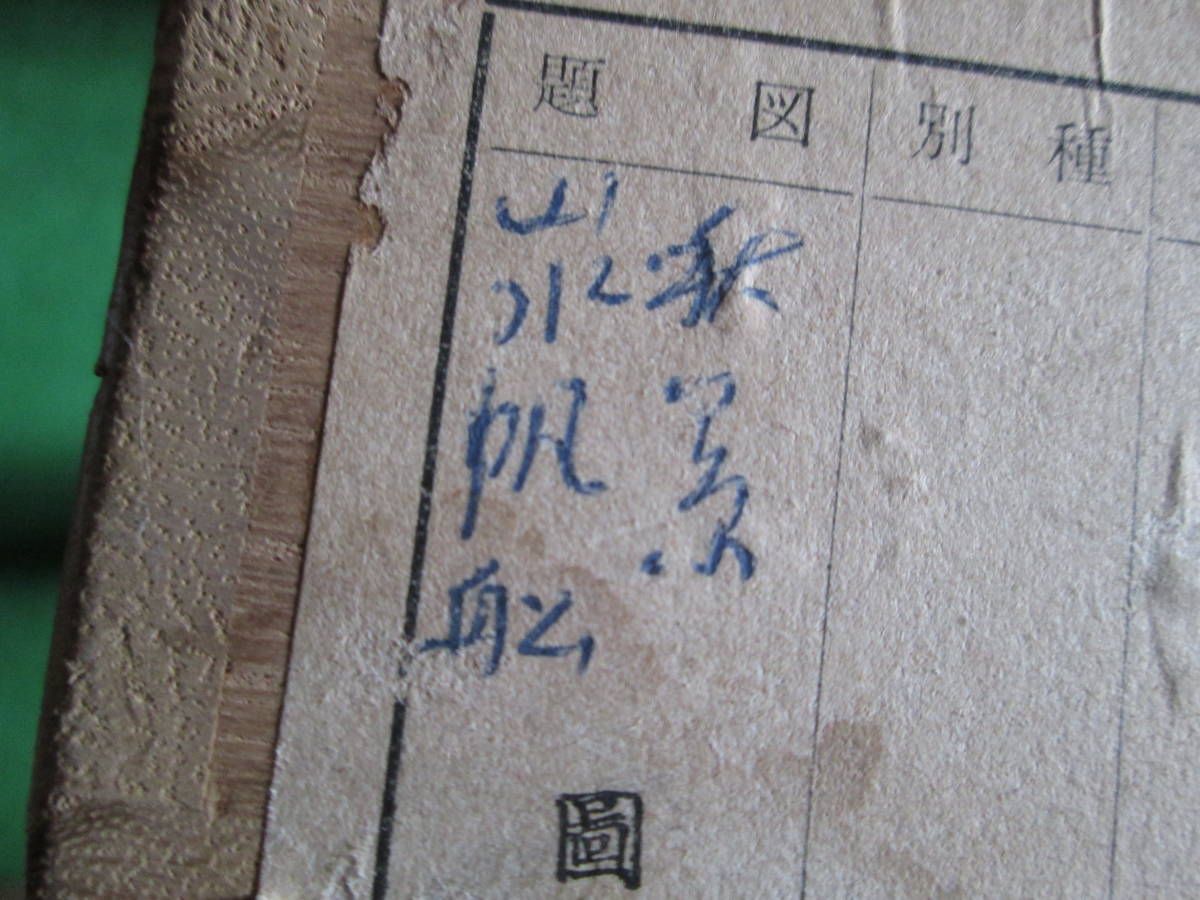 種別
図題
秋景
山水帆舩
圖